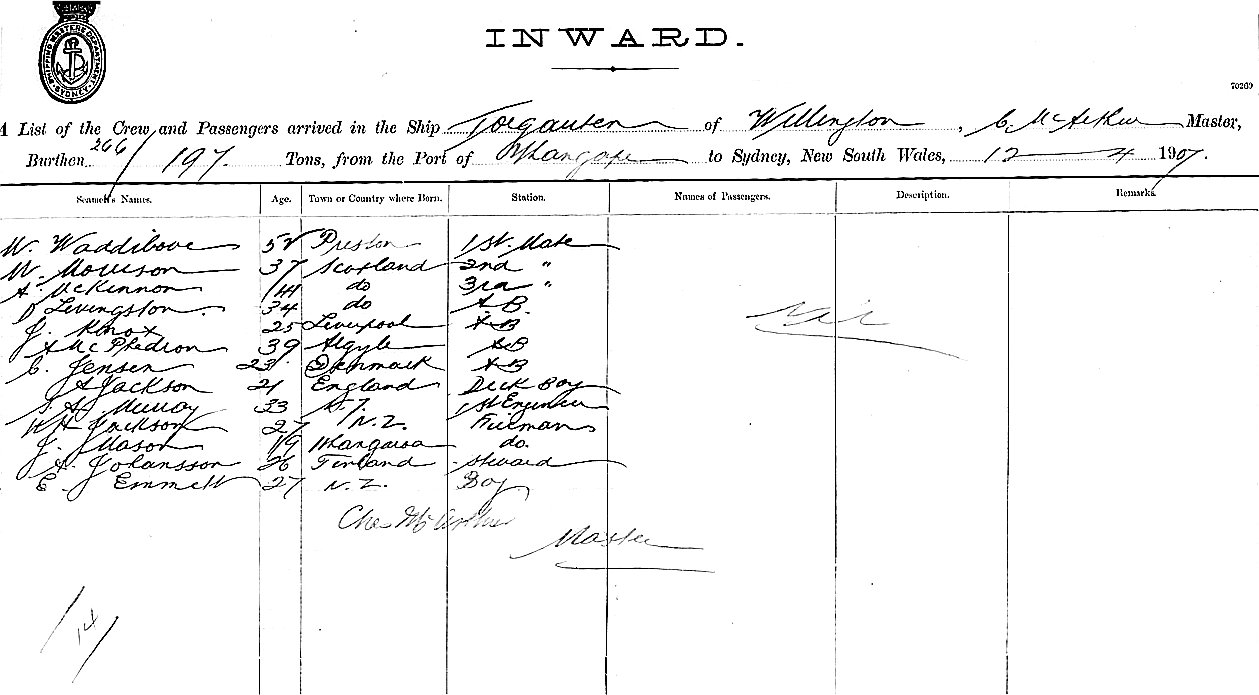 SHIPPING MASTERS DEPARTMENT SYDNEY
INWARD.
70269
A List of the Crew and Passengers arrived in the Ship of Wellington, C McArthur Master,
Burthen 266/197. Tons, from the Port of to Sydney, New South Wales, 12 4 1907.
Seamen's Names. Age. Town or Country where Born. Station. Names of Passengers. Description. Remarks.
W. 52 Preston 1st. Mate
W. Morrison 37 Scotland 2nd "
A. McKinnon 44 do 3rd "
D Levingston. 34 do A.B.
J. Knox 25 Liverpool AB
A McPhedron 39 Argyle AB
C. Jensen 23 Denmark AB
A Jackson 21 England Deck Boy
Murray 33 N.Z. 1st Engineer
W H Jackson 27 N.Z. Fireman
J. Mason 19 Whangaroa do.
A. Johansson 26 Finland Steward
E. Emmett 27 N.Z. Boy
Nil
Chas McArthur
Master
/14/